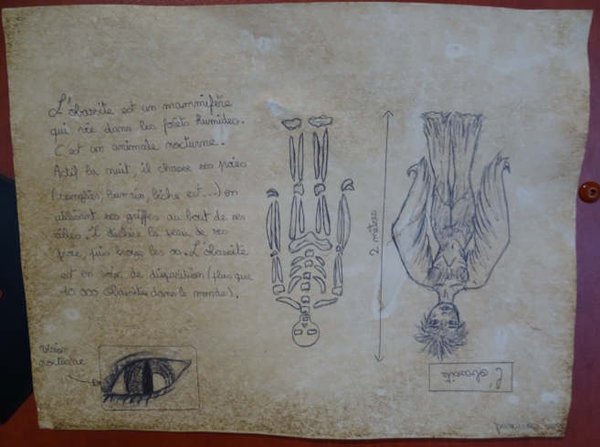 L'obaasite est un mammifère
qui vie dans les forêts humides.
C'est un animale nocturne.
Actif la nuit, il chasse ses proies
(sanglier, humain, biche est...) en
utilisant ses griffes au bout de ses
ailes. Il déchire la peau de ses
proie, puis les os. L'obaasite
est en voie de disparition (plus que
10 000 dans le monde).
Vision
nocturne
2 mètres
L'